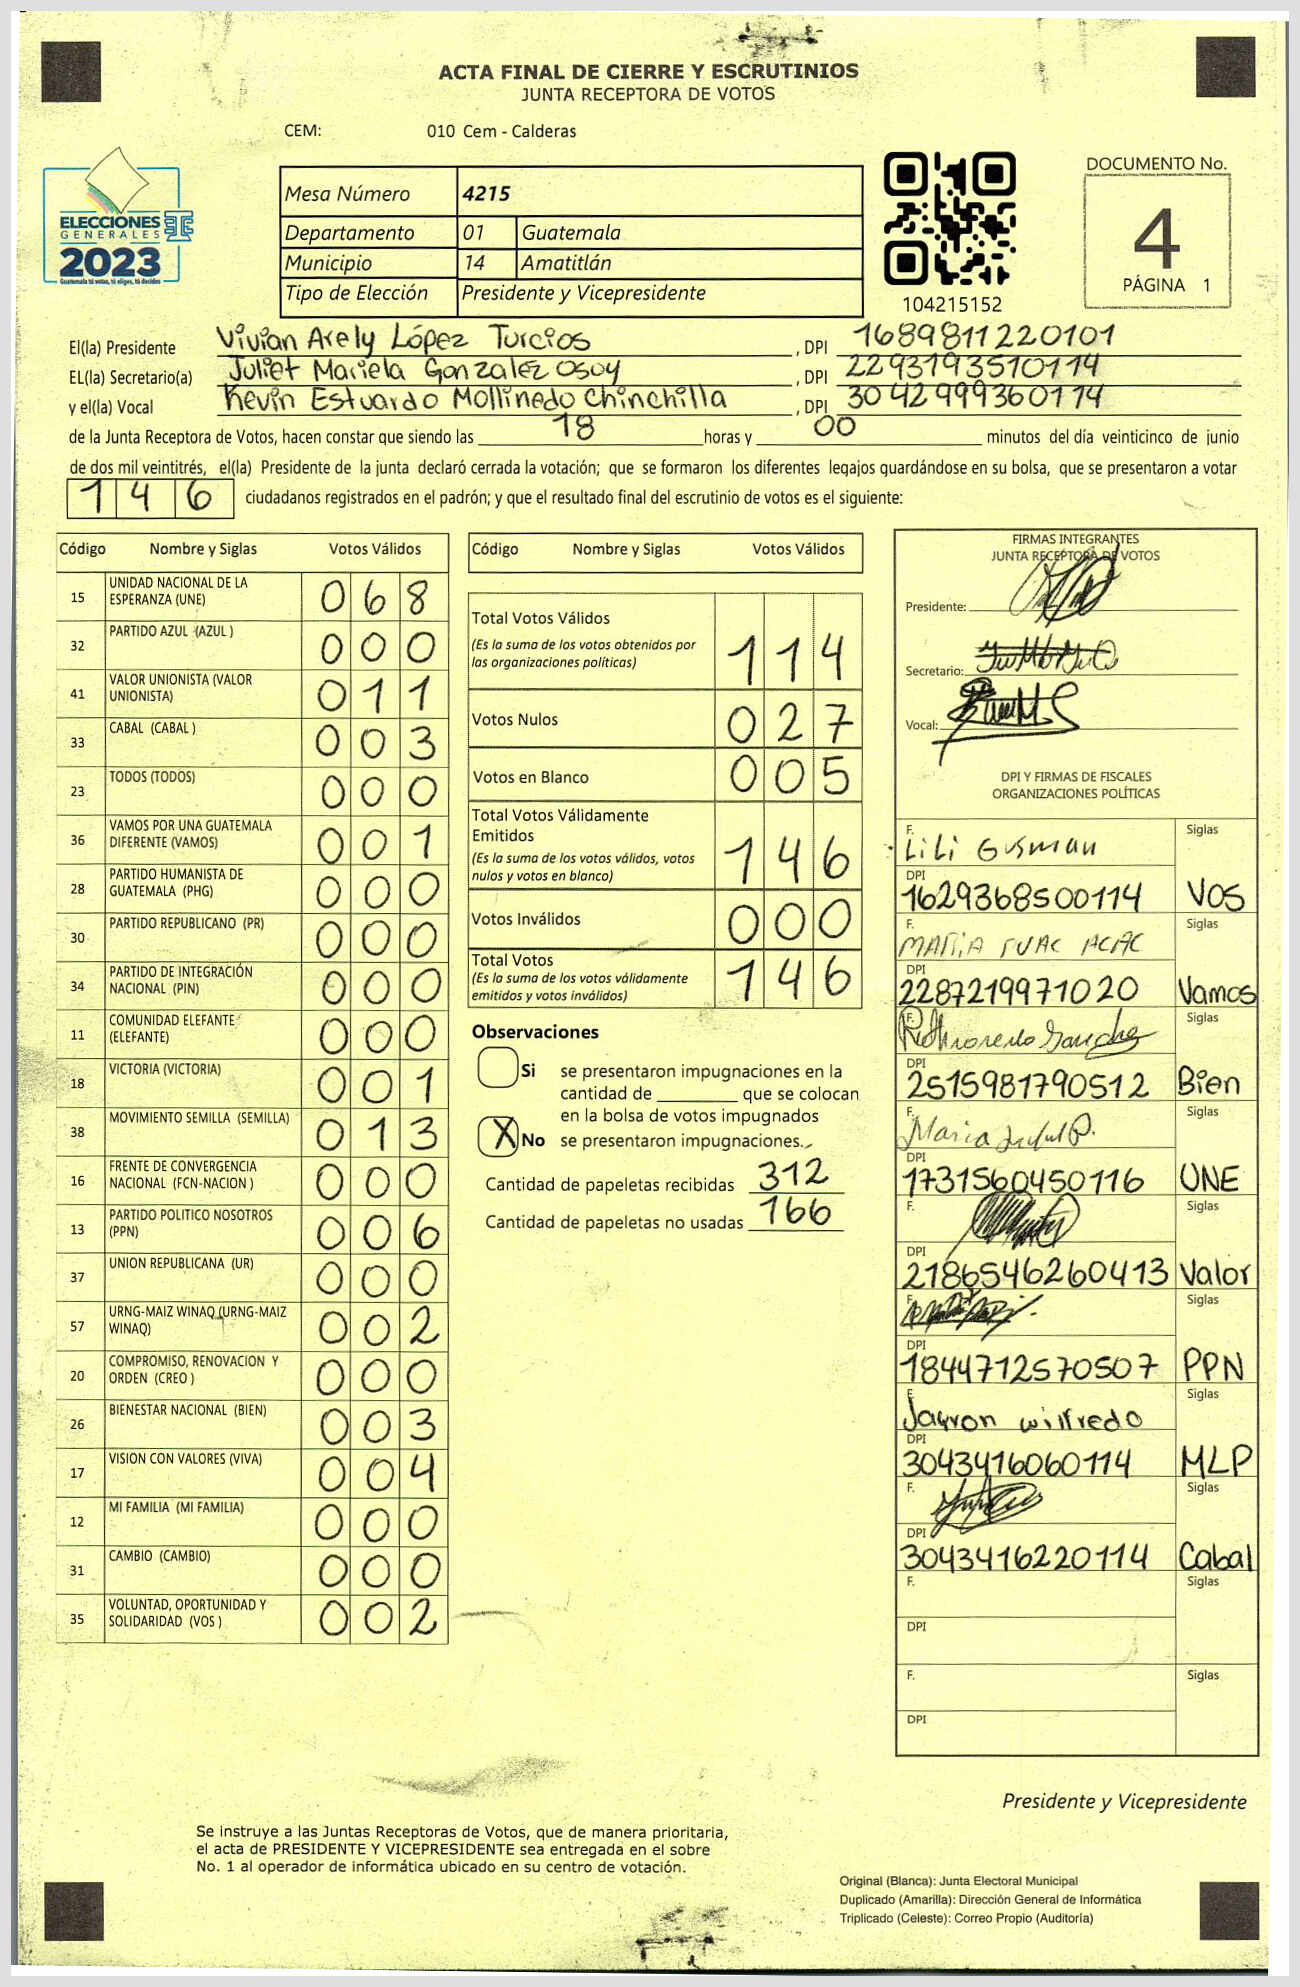 ACTA FINAL DE CIERRE Y ESCRUTINIOS
JUNTA RECEPTORA DE VOTOS
CEM: 010 Cem - Calderas
ELECCIONES
GENERALES
2023
Guatemala tú votas, tú eliges, tú decides
Mesa Número 4215
Departamento 01 Guatemala
Municipio 14 Amatitlán
Tipo de Elección Presidente y Vicepresidente
104215152
DOCUMENTO No.
4
PÁGINA 1
El(la) Presidente Vivian Arely López Turcios, DPI 1689811220101
EL(la) Secretario(a) Juliet Mariela Gonzalez Osoy, DPI 2293193510114
y el(la) Vocal Kevin Estuardo Mollinedo Chinchilla, DPI 3042999360114
de la Junta Receptora de Votos, hacen constar que siendo las 18 horas y 00 minutos del día veinticinco de junio
de dos mil veintitrés, el(la) Presidente de la junta declaró cerrada la votación; que se formaron los diferentes legajos guardándose en su bolsa, que se presentaron a votar
146 ciudadanos registrados en el padrón; y que el resultado final del escrutinio de votos es el siguiente:
Código Nombre y Siglas Votos Válidos
15 UNIDAD NACIONAL DE LA ESPERANZA (UNE) 068
32 PARTIDO AZUL (AZUL ) 000
41 VALOR UNIONISTA (VALOR UNIONISTA) 011
33 CABAL (CABAL ) 003
23 TODOS (TODOS) 000
36 VAMOS POR UNA GUATEMALA DIFERENTE (VAMOS) 001
28 PARTIDO HUMANISTA DE GUATEMALA (PHG) 000
30 PARTIDO REPUBLICANO (PR) 000
34 PARTIDO DE INTEGRACIÓN NACIONAL (PIN) 000
11 COMUNIDAD ELEFANTE (ELEFANTE) 000
18 VICTORIA (VICTORIA) 001
38 MOVIMIENTO SEMILLA (SEMILLA) 013
16 FRENTE DE CONVERGENCIA NACIONAL (FCN-NACION ) 000
13 PARTIDO POLITICO NOSOTROS (PPN) 006
37 UNION REPUBLICANA (UR) 000
57 URNG-MAIZ WINAQ (URNG-MAIZ WINAQ) 002
20 COMPROMISO, RENOVACION Y ORDEN (CREO ) 000
26 BIENESTAR NACIONAL (BIEN) 003
17 VISION CON VALORES (VIVA) 004
12 MI FAMILIA (MI FAMILIA) 000
31 CAMBIO (CAMBIO) 000
35 VOLUNTAD, OPORTUNIDAD Y SOLIDARIDAD (VOS ) 002
Código Nombre y Siglas Votos Válidos
Total Votos Válidos 114
(Es la suma de los votos obtenidos por
las organizaciones políticas)
Votos Nulos 027
Votos en Blanco 005
Total Votos Válidamente
Emitidos 146
(Es la suma de los votos válidos, votos
nulos y votos en blanco)
Votos Inválidos 000
Total Votos 146
(Es la suma de los votos válidamente
emitidos y votos inválidos)
Observaciones
Si se presentaron impugnaciones en la
cantidad de ________ que se colocan
en la bolsa de votos impugnados
X No se presentaron impugnaciones.
Cantidad de papeletas recibidas 312
Cantidad de papeletas no usadas 166
FIRMAS INTEGRANTES
JUNTA RECEPTORA DE VOTOS
Presidente:
Secretario:
Vocal:
DPI Y FIRMAS DE FISCALES
ORGANIZACIONES POLÍTICAS
F. Lili Gusman Siglas
DPI 1629368500114 VOS
F. MARIA Siglas
DPI 2287219971020 Vamos
F. Siglas
DPI 2515981790512 Bien
F. Maria Siglas
DPI 1731560450116 UNE
F. Siglas
DPI 2186546260413 Valor
F. Siglas
DPI 1844712570507 PPN
F. Jayron wilfredo Siglas
DPI 3043416060114 MLP
F. Siglas
DPI 3043416220114 Cabal
F. Siglas
DPI
F. Siglas
DPI
Presidente y Vicepresidente
Se instruye a las Juntas Receptoras de Votos, que de manera prioritaria,
el acta de PRESIDENTE Y VICEPRESIDENTE sea entregada en el sobre
No. 1 al operador de informática ubicado en su centro de votación.
Original (Blanca): Junta Electoral Municipal
Duplicado (Amarilla): Dirección General de Informática
Triplicado (Celeste): Correo Propio (Auditoría)